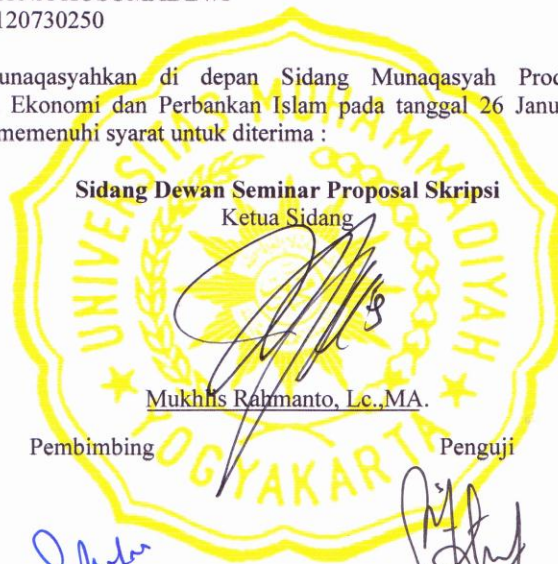 120730250
unaqasyahkan di depan Sidang Munaqasyah Prod
Ekonomi dan Perbankan Islam pada tanggal 26 Janu
memenuhi syarat untuk diterima :
Sidang Dewan Seminar Proposal Skripsi
Ketua Sidang
Mukhlis Rahmanto, Lc.,MA.
Pembimbing
Penguji
UNIVERSITAS MUHAMMADIYAH
YOGYAKARTA